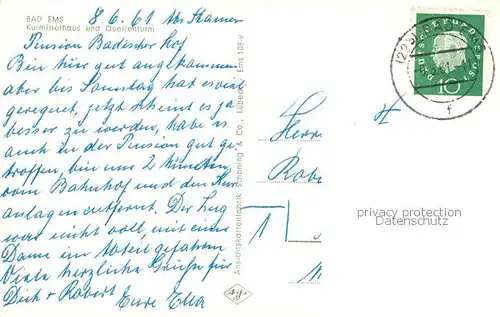 BAD EMS
Kurmittelhaus und Quellenturm
8.6.61
Pension Badischer Hof
Bin hier gut angekommen
aber bis Samstag hat es viel
geregnet, jetzt scheint es ja
besser zu werden, habe es
auch in der Pension gut ge-
troffen, bin nur 2 Minuten
vom Bahnhof und den Kur
anlagen entfernt. Der Zug
war nicht voll, mit einer
Dame im Abteil gefahren
Viele herzliche Grüße für
Dich + Robert Eure Ella
Ansichtskartenfabrik Schöning & Co., Lübeck
Ems 103-v
DEUTSCHE BUNDESPOST
10
Herrn
Robe
privacy protection
address removed